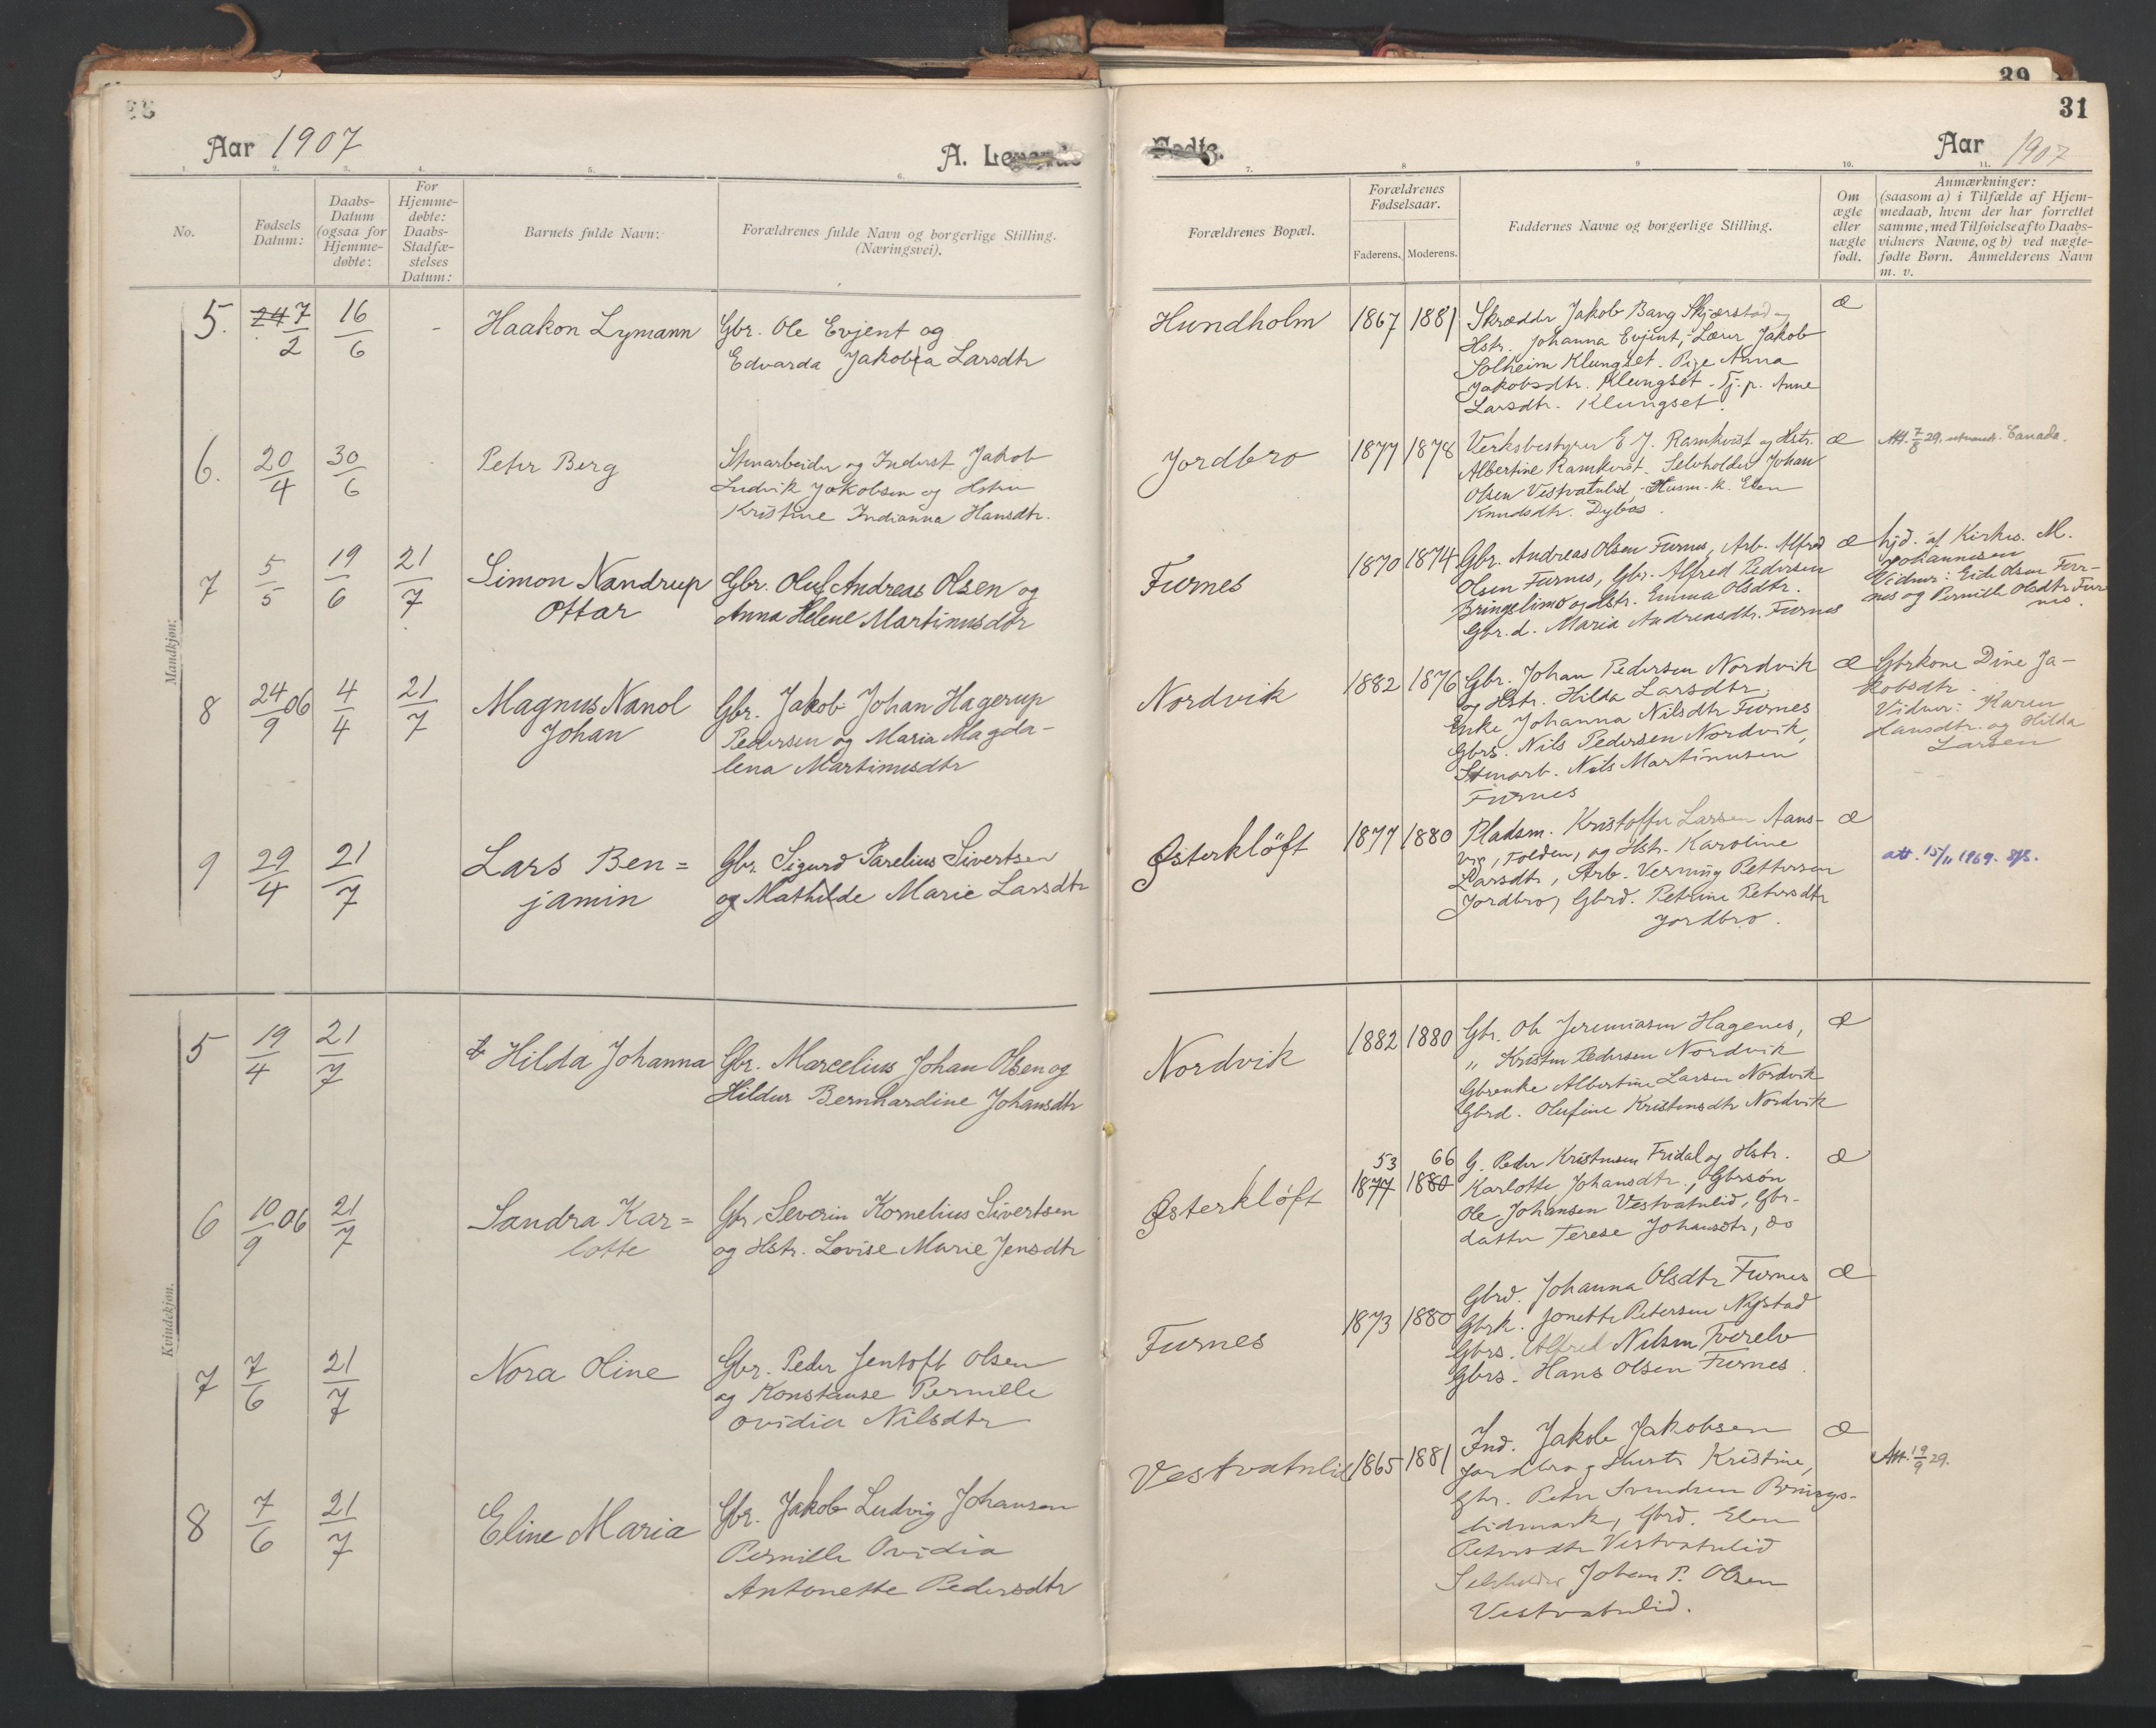 39
31
Aar 1907
A. Levende
Fødte.
Aar 1907
1. 2. 3. 4. 5. 6. 7. 8 9 10. 11.
No.
Fødsels
Datum:
Daabs-
Datum
(ogsaa for
Hjemme-
døbte:
For
Hjemme-
døbte:
Daabs-
Stadfæ-
stelses
Datum:
Barnets fulde Navn:
Forældrenes fulde Navn og borgerlige Stilling.
(Næringsvei).
Forældrenes Bopæl.
Forældrenes
Fødselsaar.
Faderens. Moderens.
Faddernes Navne og borgerlige Stilling.
Om
ægte
eller
uægte
født.
Anmærkninger:
(saasom a) i Tilfælde af Hjem-
medaab, hvem der har forrettet
samme, med Tilføielse af to Daabs-
vidners Navne, og b) ved uægte-
fødte Børn. Anmelderens Navn
m. v.
Mandkjøn:
5. 24 7/2 16/6 - Haakon Lymann
Gbr. Ole Evjent og
Edvarda Jakobia Larsdtr
Hundholm 1867 1881
Skrædder Jakob Bang Skjærstad og
Hstr. Johanna Evjent, Lærer Jakob
Solheim Klungset. Pige Anna
Jakobsdtr. Klungset. Tj. p. Anne
Larsdtr. Klungset.
æ
6. 20/4 30/6 Peter Berg
Stenarbeider og Inderst Jakob
Ludvik Jakobsen og Hstru
Kristine Indianna Hansdtr.
Jordbro 1877 1878
Verksbestyrer E. J. Ramkvist og Hstr.
Albertine Ramkvist. Selvholder Johan
Olsen Vestvatnlid, Husm. k. Elen
Knudsdtr. Dybos.
æ
Att. 7/8 29. Canada.
7 5/5 19/6 21/7 Simon Nandrup
Ottar
Gbr. Oluf Andreas Olsen og
Anna Helene Martinusdtr
Furnes 1870 1874
Gbr. Andreas Olsen Furnes, Arb. Alfred
Olsen Furnes, Gbr. Alfred Pedersen
Bringslimo og Hstr. Emma Olsdtr.
Gbr. d. Maria Andreasdtr. Furnes
æ
hjd. af Kirkes. M.
Johannesen
Vidner: Eide Olsen Fur-
nes og Pernille Olsdtr Fur
nes.
8 24/9 06 4/4 21/7 Magnus Nanol
Johan
Gbr. Jakob Johan Hagerup
Pedersen og Maria Magda-
lena Martinusdtr
Nordvik 1882 1876
Gbr. Johan Pedersen Nordvik
og Hstr. Hilda Larsdtr,
Enke Johanna Nilsdtr Furnes
Gbrs. Nils Pedersen Nordvik,
Stenarb. Nils Martinusen
Furnes
æ
Gbrkone Dine Ja-
kobsdtr.
Vidner: Karen
Hansdtr. og Hilda
Larsen
9 29/4 21/7 Lars Ben=
jamin
Gbr. Sigurd Parelius Sivertsen
og Mathilde Marie Larsdtr
Østerkløft 1877 1880
Pladsm. Kristoffer Larsen Aans-
vig, Folden, og Hstr. Karoline
Larsdtr, Arb. Verning Pettersen
Jordbro, Gbrd. Petrine Petersdtr
Jordbro.
æ
att. 15/11 1969.
Kvindekjøn.
5 19/4 21/7 Hilda Johanna
Gbr. Marcelius Johan Olsen og
Hildur Bernhardine Johansdtr
Nordvik 1882 1880
Gbr. Ole Jeremiasen Hagenes,
" Kristen Pedersen Nordvik
Gbrenke Albertine Larsen Nordvik
Gbrd. Olufine Kristensdtr Nordvik
æ
6 10/9 06 21/7 Sandra Kar=
lotte
Gbr. Severin Kornelius Sivertsen
og Hstr. Lovise Marie Jensdtr
Østerkløft 53 66
1877 1880
G. Peder Kristensen Fridal og Hstr.
Karlotte Johansdtr., Gbrsøn
Ole Johansen Vestvatnlid, Gbr-
datter Terese Johansdtr, do
æ
7 7/6 21/7 Nora Oline
Gbr. Peder Jentoft Olsen
og Konstanse Pernille
Ovidia Nilsdtr
Furnes 1873 1880
Gbrd. Johanna Olsdtr Furnes
Gbrk. Jonette Petersen Nystad
Gbrs. Alfred Nilsen Tverelv
Gbrs. Hans Olsen Furnes.
æ
8 7/6 21/7 Eline Maria
Gbr. Jakob Ludvig Johansen
Pernille Ovidia
Antonette Pedersdtr
Vestvatnlid 1865 1881
Ind. Jakob Jakobsen
Jordbro, Hustr Kristine,
Gbr. Peter Svendsen Brings-
lidmark, Gbrd. Elen
Petersdtr Vestvatnlid
Selvholder Johan P. Olsen
Vestvatnlid.
æ
Att. 19/9 29.